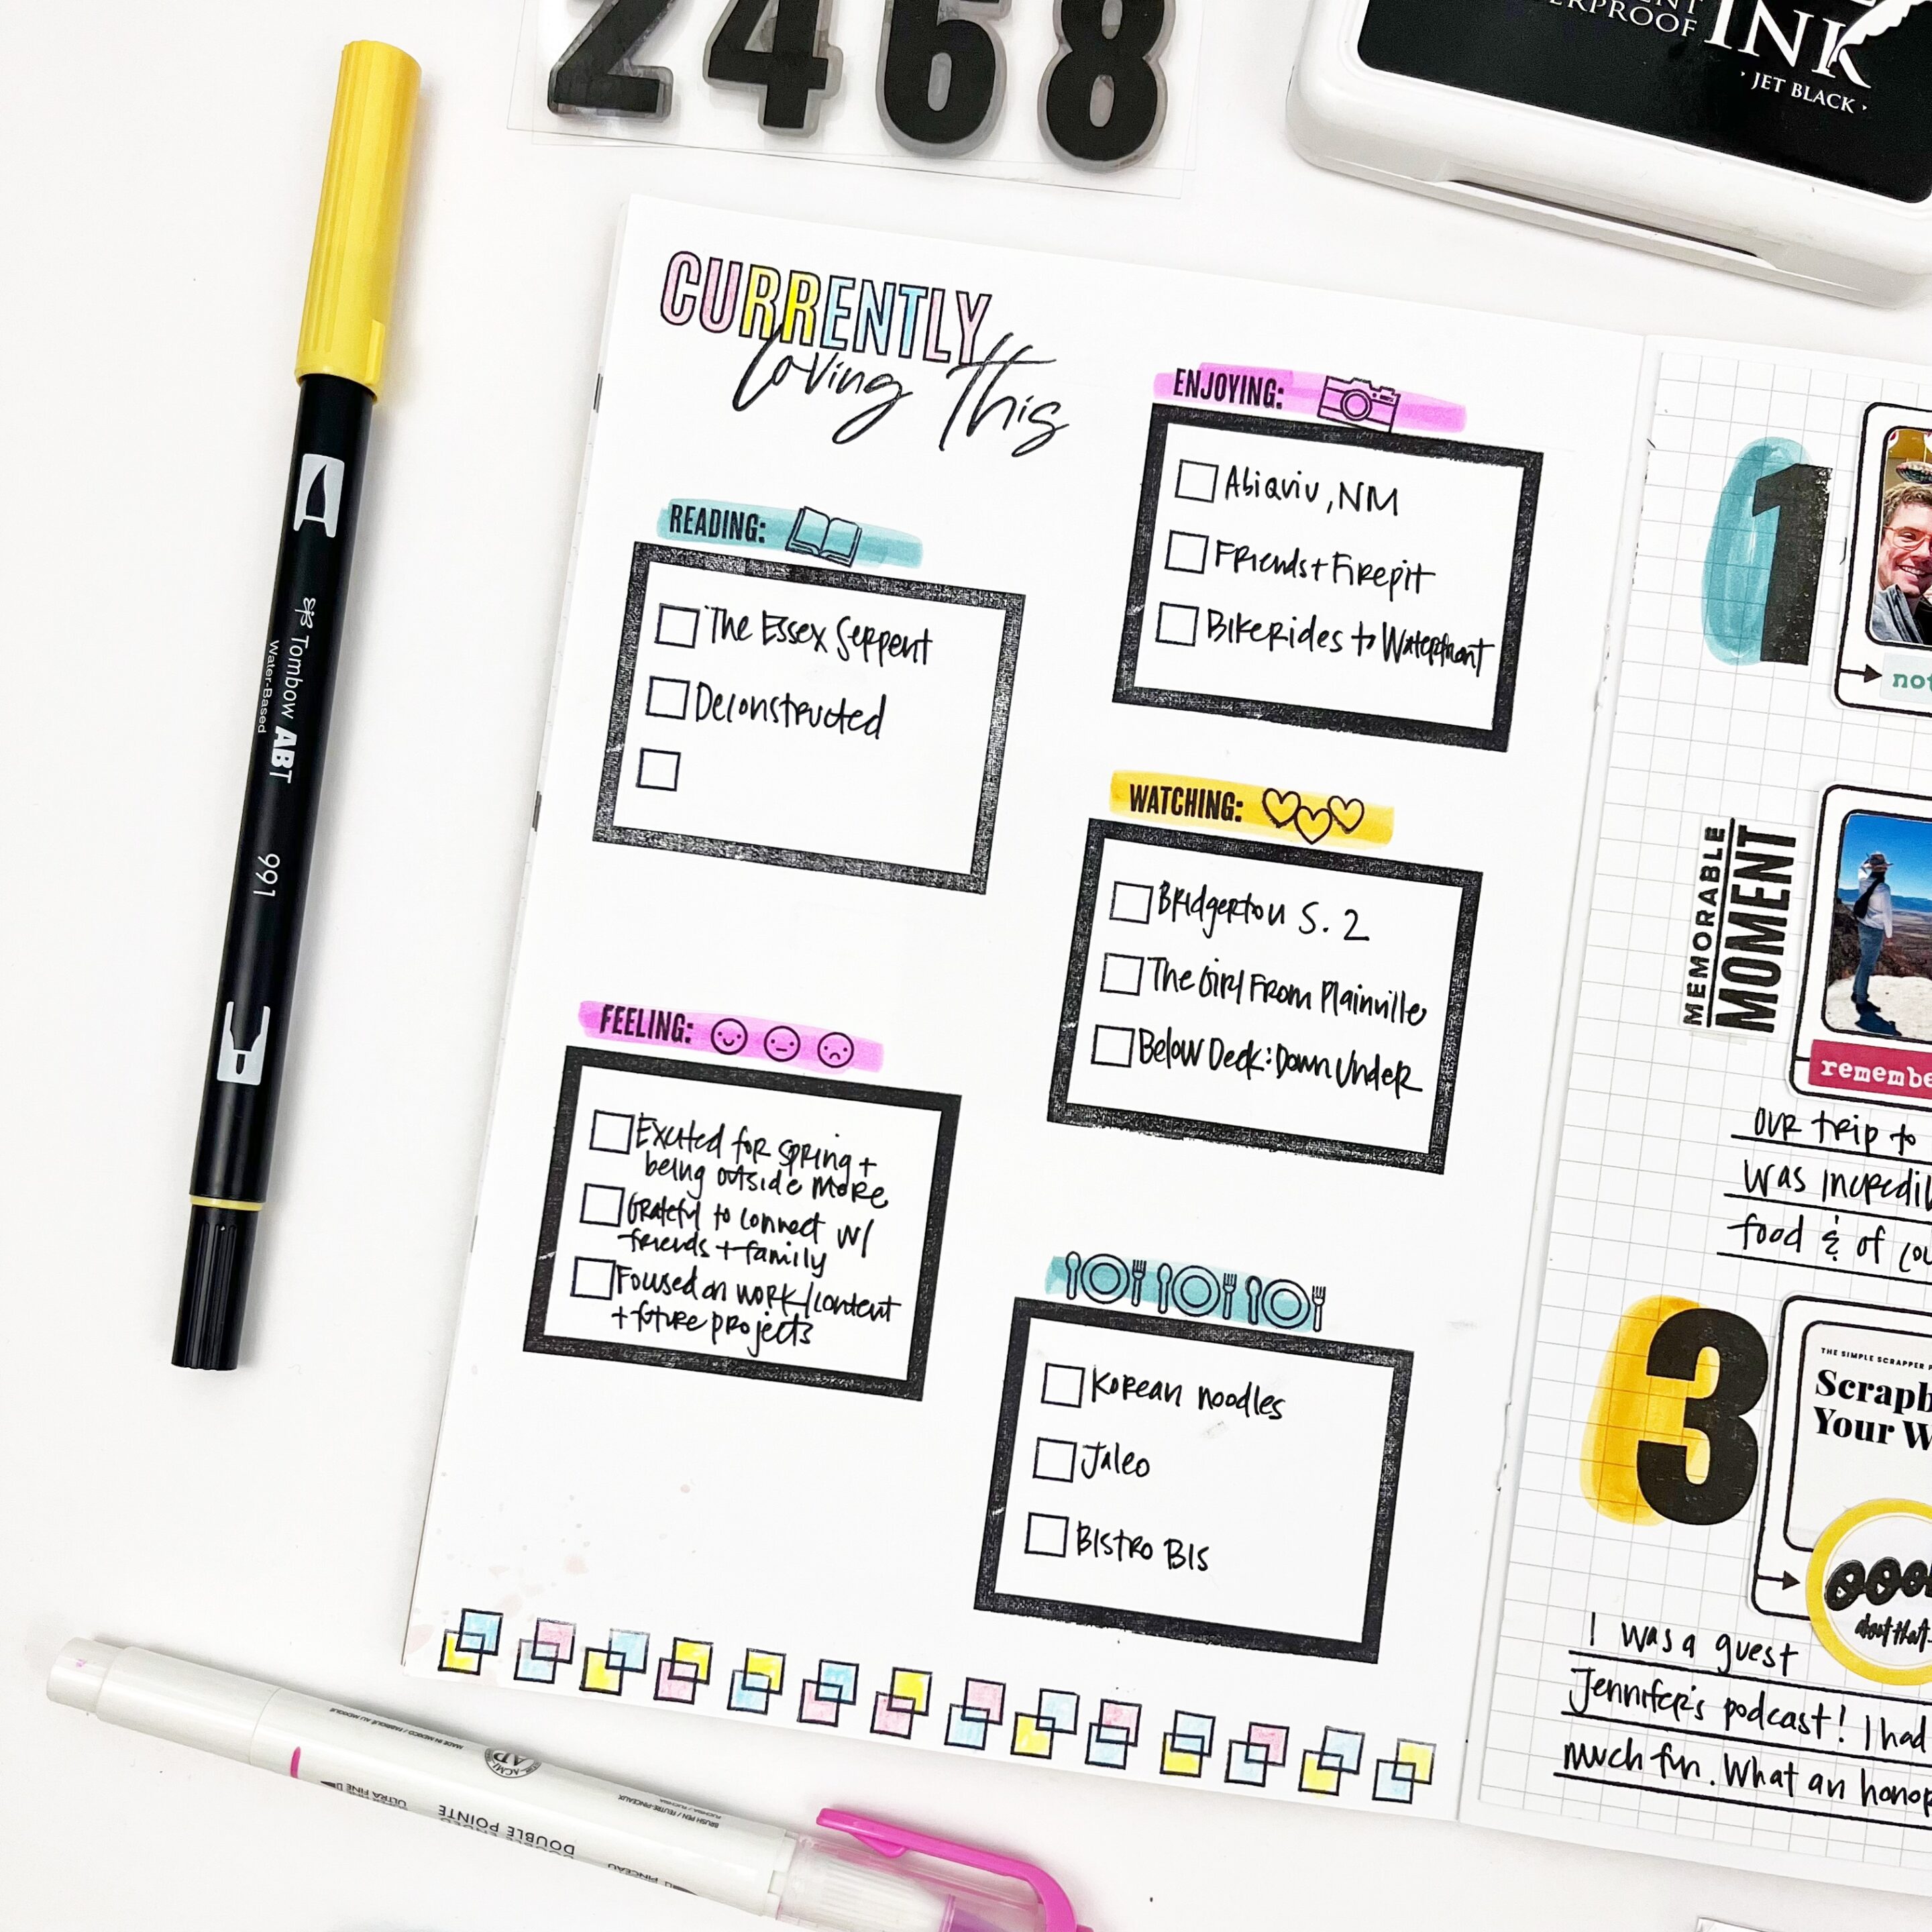 2468
ENT
ERPROOF
INK
· JET BLACK ·
Tombow ABT
Water-Based
991
CURRENTLY
Loving This
READING:
The Essex Serpent
Deconstructed
FEELING:
Excited for spring +
being outside more
Grateful to connect w/
friends + family
Focused on work/content
+ future projects
ENJOYING:
Abiqviu, NM
Friends + Firepit
Bikerides to Waterfront
WATCHING:
Bridgerton S. 2
The Girl From Plainville
Below Deck: Down Under
Korean noodles
Jaleo
Bistro Bis
1
not
MEMORABLE
MOMENT
remembe
our trip to
was incredi
food & of cou
3
THE SIMPLE SCRAPPER P
Scrapb
Your W
about that
I was a guest
Jennifer's podcast! I had
much fun. What an honor
MADE IN MEXICO / FABRIQUÉ AU MEXIQUE
AP
ACMI
BRUSH PEN / FEUTRE-PINCEAUX
FUCHSIA / FUCHSIA
ULTRA FINE
DOUBLE POINTE
PINCEAU